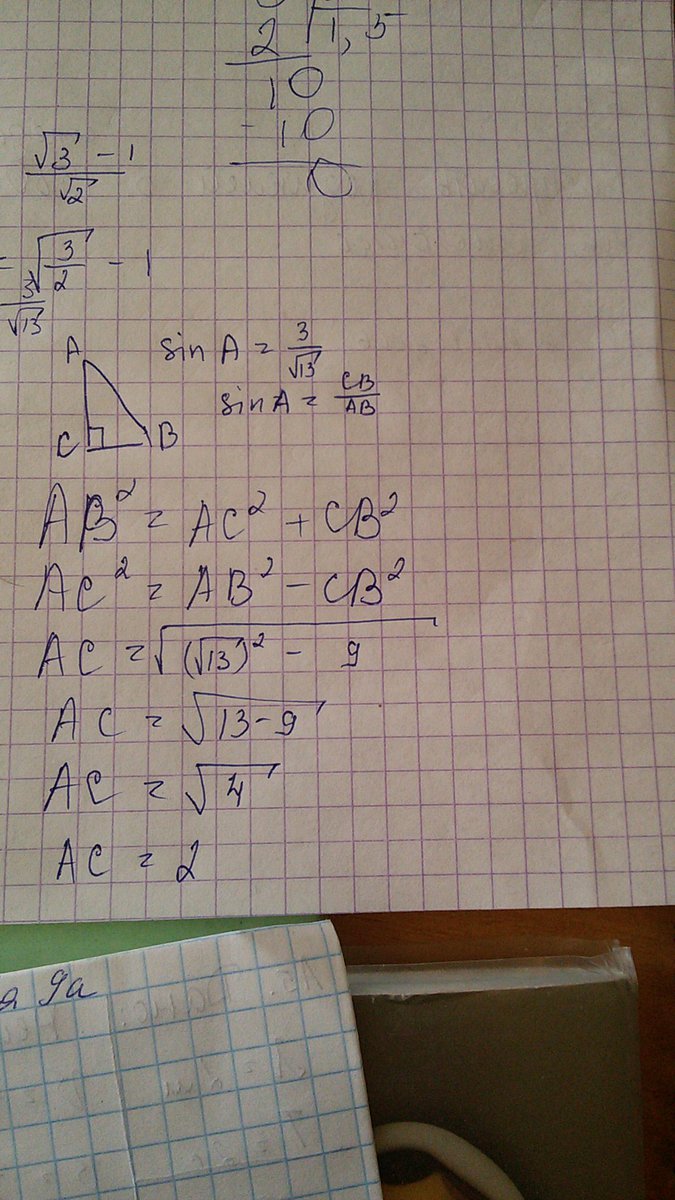 2 1,5
10
-10
0
√3 - 1
√2
= √(3/2) - 1
3/√13
A
sin A = 3/√13
sin A = CB/AB
C B
AB² = AC² + CB²
AC² = AB² - CB²
AC = √((√13)² - 9)
AC = √(13-9)
AC = √4
AC = 2
9a